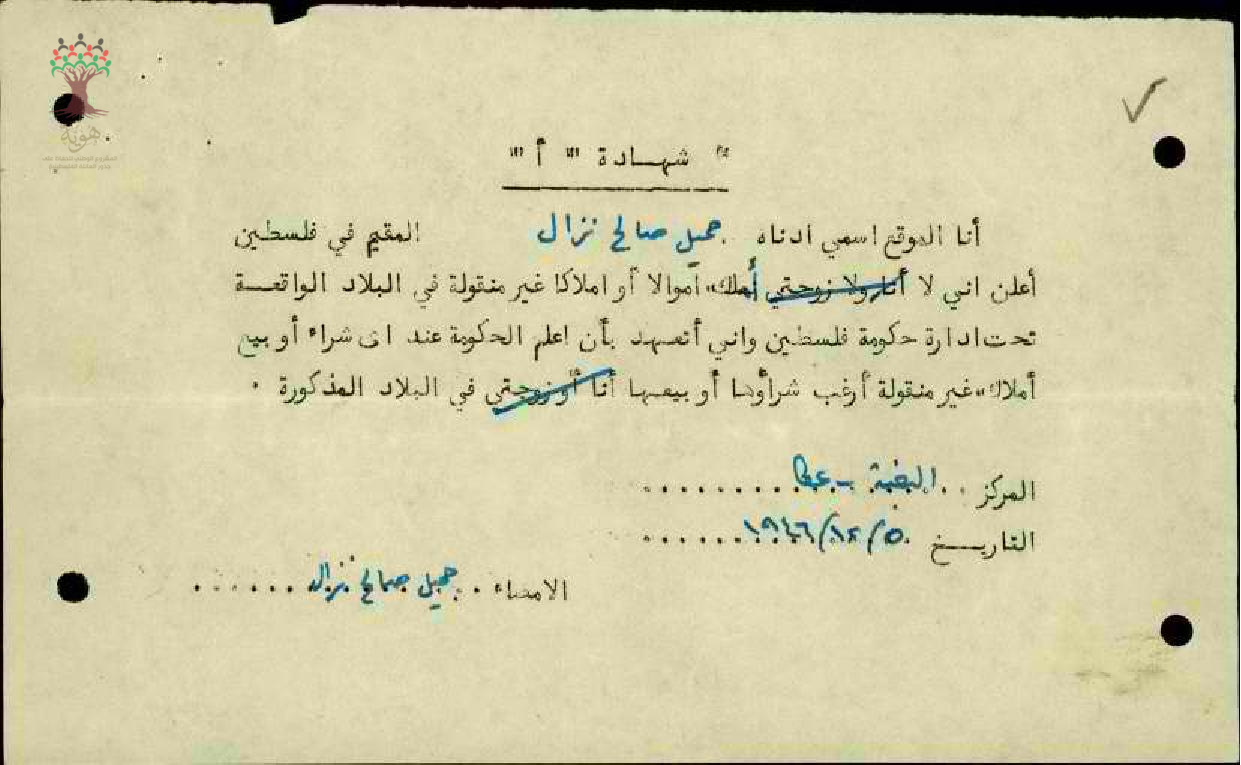 هوية
" شهادة " أ "
أنا الموقع اسمي ادناه جميل صالح نزال المقيم في فلسطين
أعلن اني لا أنا ولا زوجتي أملك أموالا أو املاكا غير منقولة في البلاد الواقعة
تحت ادارة حكومة فلسطين واني أتعهد بأن اعلم الحكومة عند اى شراء أو بيع
أملاك غير منقولة أرغب شراؤها أو بيعها أنا أو زوجتي في البلاد المذكورة .
المركز .. - عكا ..........
التاريخ ٥/١٢/١٩٤٦ .......
الامضاء .. جميل صالح نزال ......